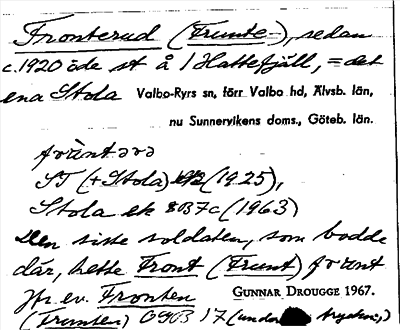 Fronterud (Frunte-), sedan
c. 1920 öde st å 1 Hattefjäll, = det
ena Stola Valbo-Ryrs sn, förr Valbo hd, Älvsb. län,
nu Sunnervikens doms., Göteb. län.
ST (+Stola) (1925),
Stola ek 8B7c (1963)
Den siste soldaten, som bodde
där, hette Front (Frunt)
Jfr ev. Fronten GUNNAR DROUGGE 1967.
(Frunten) OGB 17 (under